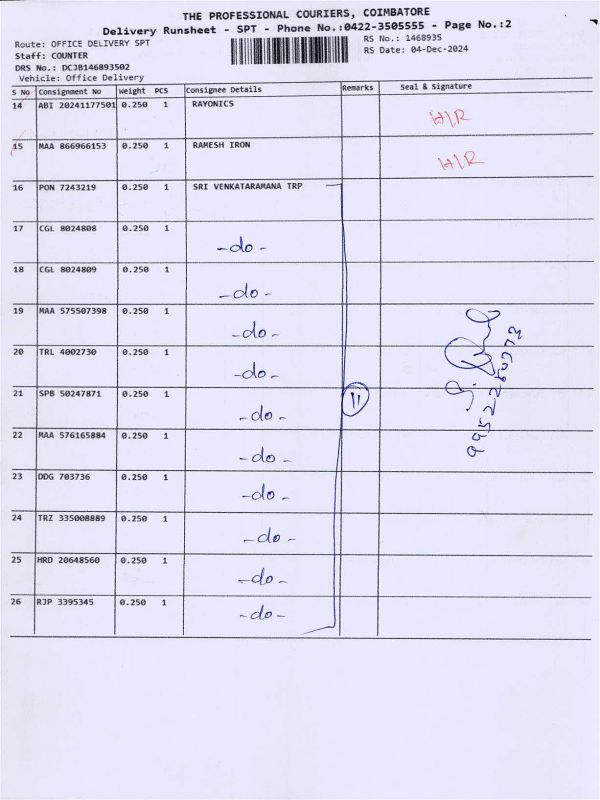 THE PROFESSIONAL COURIERS, COIMBATORE
Delivery Runsheet - SPT - Phone No.:0422-3505555 - Page No.:2
Route: OFFICE DELIVERY SPT
Staff: COUNTER
DRS No.: DC3B146893502
Vehicle: Office Delivery
RS No.: 1468935
RS Date: 04-Dec-2024
S No Consignment No Weight PCS Consignee Details Remarks Seal & Signature
14 ABI 20241177501 0.250 1 RAYONICS H/R
15 MAA 866966153 0.250 1 RAMESH IRON H/R
16 PON 7243219 0.250 1 SRI VENKATARAMANA TRP
17 CGL 8024808 0.250 1 -do-
18 CGL 8024809 0.250 1 -do-
19 MAA 575507398 0.250 1 -do-
20 TRL 4002730 0.250 1 -do-
21 SPB 50247871 0.250 1 -do- 11
22 MAA 576165884 0.250 1 -do-
23 DDG 703736 0.250 1 -do-
24 TRZ 335008889 0.250 1 -do-
25 HRD 20648560 0.250 1 -do-
26 RJP 3395345 0.250 1 -do-